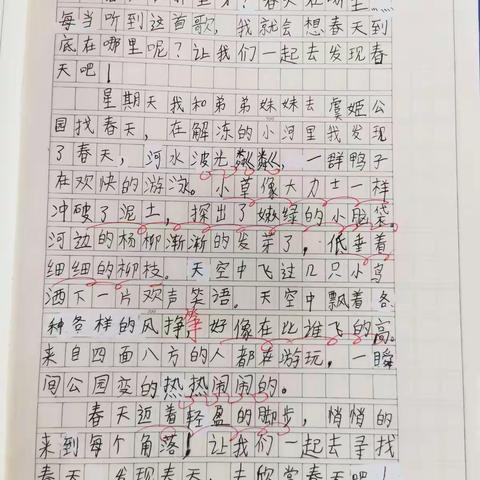 每当听到这首歌，我就会想春天到
底在哪里呢？让我们一起去发现春
天吧！
星期天我和弟弟妹妹去虞姬公
园找春天，在解冻的小河里我发现
了春天，河水波光粼粼，一群鸭子
在欢快的游泳。小草像大力士一样
冲破了泥土，探出了嫩绿的小脑袋。
河边的杨柳渐渐的发芽了，低垂着
细细的柳枝。天空中飞过几只小鸟
洒下一片欢声笑语。天空中飘着各
种各样的风筝，好像在比谁飞的高。
来自四面八方的人都在游玩，一瞬
间公园变的热热闹闹的。
春天迈着轻盈的脚步，悄悄的
来到每个角落！让我们一起去寻找
春天，发现春天，去欣赏春天吧！